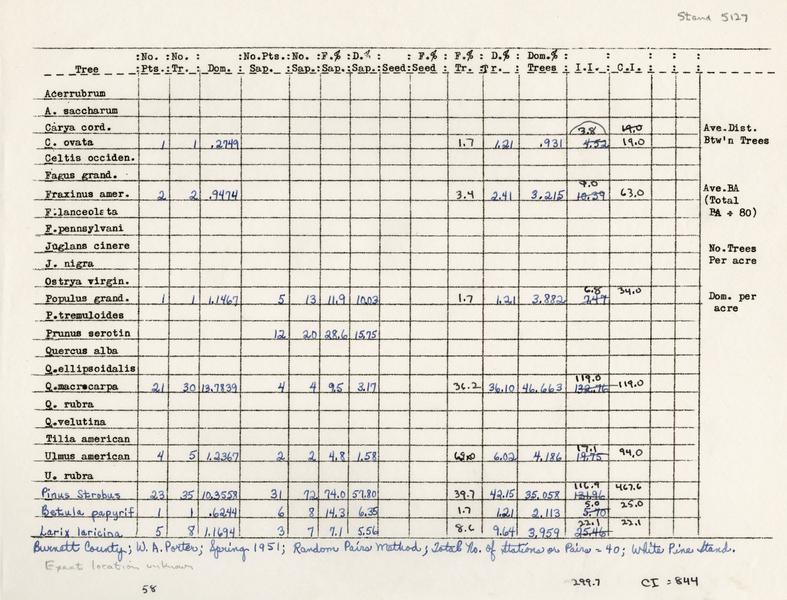 Stand 5127
:No. :No. : :No.Pts.:No. :F.% :D.% : :F.% :F.% :D.% :Dom.% : : : : :
Tree :Pts.:Tr. : Dom. : Sap. :Sap.:Sap.:Sap.:Seed:Seed : Tr. :Tr. :Trees : I.I.: C.I. : : :
Acerrubrum
A. saccharum
Carya cord. 3.8 19.0 Ave.Dist.
C. ovata 1 1 .2749 1.7 1.21 .931 4.52 19.0 Btw'n Trees
Celtis occiden.
Fagus grand. 9.0
Fraxinus amer. 2 2 .9474 3.4 2.41 3.215 10.39 63.0 Ave.BA
(Total
F.lanceolata BA ÷ 80)
F.pennsylvani
Juglans cinere No.Trees
J. nigra Per acre
Ostrya virgin. 6.8 34.0
Populus grand. 1 1 1.1467 5 13 11.9 10.03 1.7 1.21 3.882 7.47 Dom. per
P.tremuloides acre
Prunus serotin 12 20 28.6 15.75
Quercus alba
Q.ellipsoidalis 119.0
Q.macrocarpa 21 30 13.7839 4 4 9.5 3.17 36.2 36.10 46.663 132.76 119.0
Q. rubra
Q.velutina
Tilia american 17.1
Ulmus american 4 5 1.2367 2 2 4.8 1.58 6.02 4.186 19.75 94.0
U. rubra 116.9
Pinus Strobus 23 35 10.3558 31 72 74.0 57.80 39.7 42.15 35.058 131.96 467.6
5.0
Betula papyrif 1 1 .6244 6 8 14.3 6.35 1.7 1.21 2.113 5.70 25.0
22.1
Larix laricina 5 8 1.1694 3 7 7.1 5.56 8.6 9.64 3.959 25.46 22.1
Burnett County; W. A. Porter; Spring 1951; Random Pairs Method; Total No. of Stations or Pairs = 40; White Pine Stand.
Exact location unknown
58 299.7 CI = 844